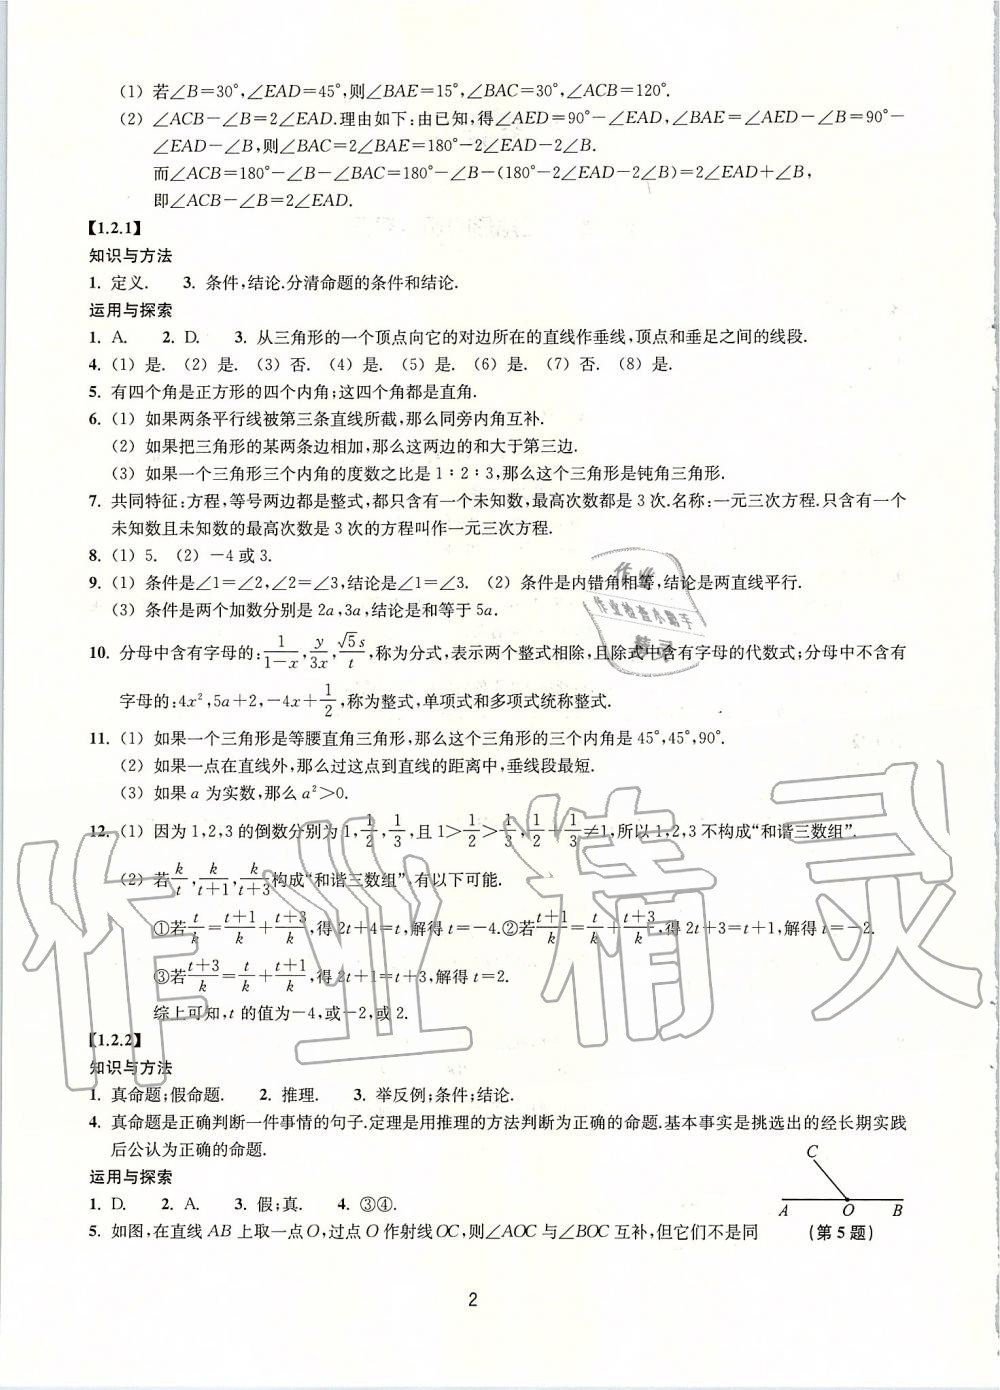 (1) 若∠B=30°,∠EAD=45°,则∠BAE=15°,∠BAC=30°,∠ACB=120°.
(2) ∠ACB-∠B=2∠EAD.理由如下:由已知,得∠AED=90°-∠EAD,∠BAE=∠AED-∠B=90°-
∠EAD-∠B,则∠BAC=2∠BAE=180°-2∠EAD-2∠B.
而∠ACB=180°-∠B-∠BAC=180°-∠B-(180°-2∠EAD-2∠B)=2∠EAD+∠B,
即∠ACB-∠B=2∠EAD.
【1.2.1】
知识与方法
1. 定义. 3. 条件,结论.分清命题的条件和结论.
运用与探索
1. A. 2. D. 3. 从三角形的一个顶点向它的对边所在的直线作垂线,顶点和垂足之间的线段.
4. (1) 是. (2) 是. (3) 否. (4) 是. (5) 是. (6) 是. (7) 否. (8) 是.
5. 有四个角是正方形的四个内角;这四个角都是直角.
6. (1) 如果两条平行线被第三条直线所截,那么同旁内角互补.
(2) 如果把三角形的某两条边相加,那么这两边的和大于第三边.
(3) 如果一个三角形三个内角的度数之比是1:2:3,那么这个三角形是钝角三角形.
7. 共同特征:方程,等号两边都是整式,都只含有一个未知数,最高次数都是3次.名称:一元三次方程.只含有一个
未知数且未知数的最高次数是3次的方程叫作一元三次方程.
8. (1) 5. (2) -4或3.
9. (1) 条件是∠1=∠2,∠2=∠3,结论是∠1=∠3. (2) 条件是内错角相等,结论是两直线平行.
(3) 条件是两个加数分别是2a,3a,结论是和等于5a.
10. 分母中含有字母的:1/(1-x),y/3x,√5s/t,称为分式,表示两个整式相除,且除式中含有字母的代数式;分母中不含有
字母的:4x²,5a+2,-4x+1/2,称为整式,单项式和多项式统称整式.
11. (1) 如果一个三角形是等腰直角三角形,那么这个三角形的三个内角是45°,45°,90°.
(2) 如果一点在直线外,那么过这点到直线的距离中,垂线段最短.
(3) 如果a为实数,那么a²>0.
12. (1) 因为1,2,3的倒数分别为1,1/2,1/3,且1>1/2>1/3,1/2+1/3≠1,所以1,2,3不构成“和谐三数组”.
(2) 若k/t,k/(t+1),k/(t+3)构成“和谐三数组”,有以下可能.
①若t/k=(t+1)/k+(t+3)/k,得2t+4=t,解得t=-4.②若(t+1)/k=t/k+(t+3)/k,得2t+3=t+1,解得t=-2.
③若(t+3)/k=t/k+(t+1)/k,得2t+1=t+3,解得t=2.
综上可知,t的值为-4,或-2,或2.
【1.2.2】
知识与方法
1. 真命题;假命题. 2. 推理. 3. 举反例;条件;结论.
4. 真命题是正确判断一件事情的句子.定理是用推理的方法判断为正确的命题.基本事实是挑选出的经长期实践
后公认为正确的命题.
运用与探索
1. D. 2. A. 3. 假;真. 4. ③④.
5. 如图,在直线AB上取一点O,过点O作射线OC,则∠AOC与∠BOC互补,但它们不是同
C
A O B
(第5题)
2
作业
作业检查小助手
精灵
作业精灵